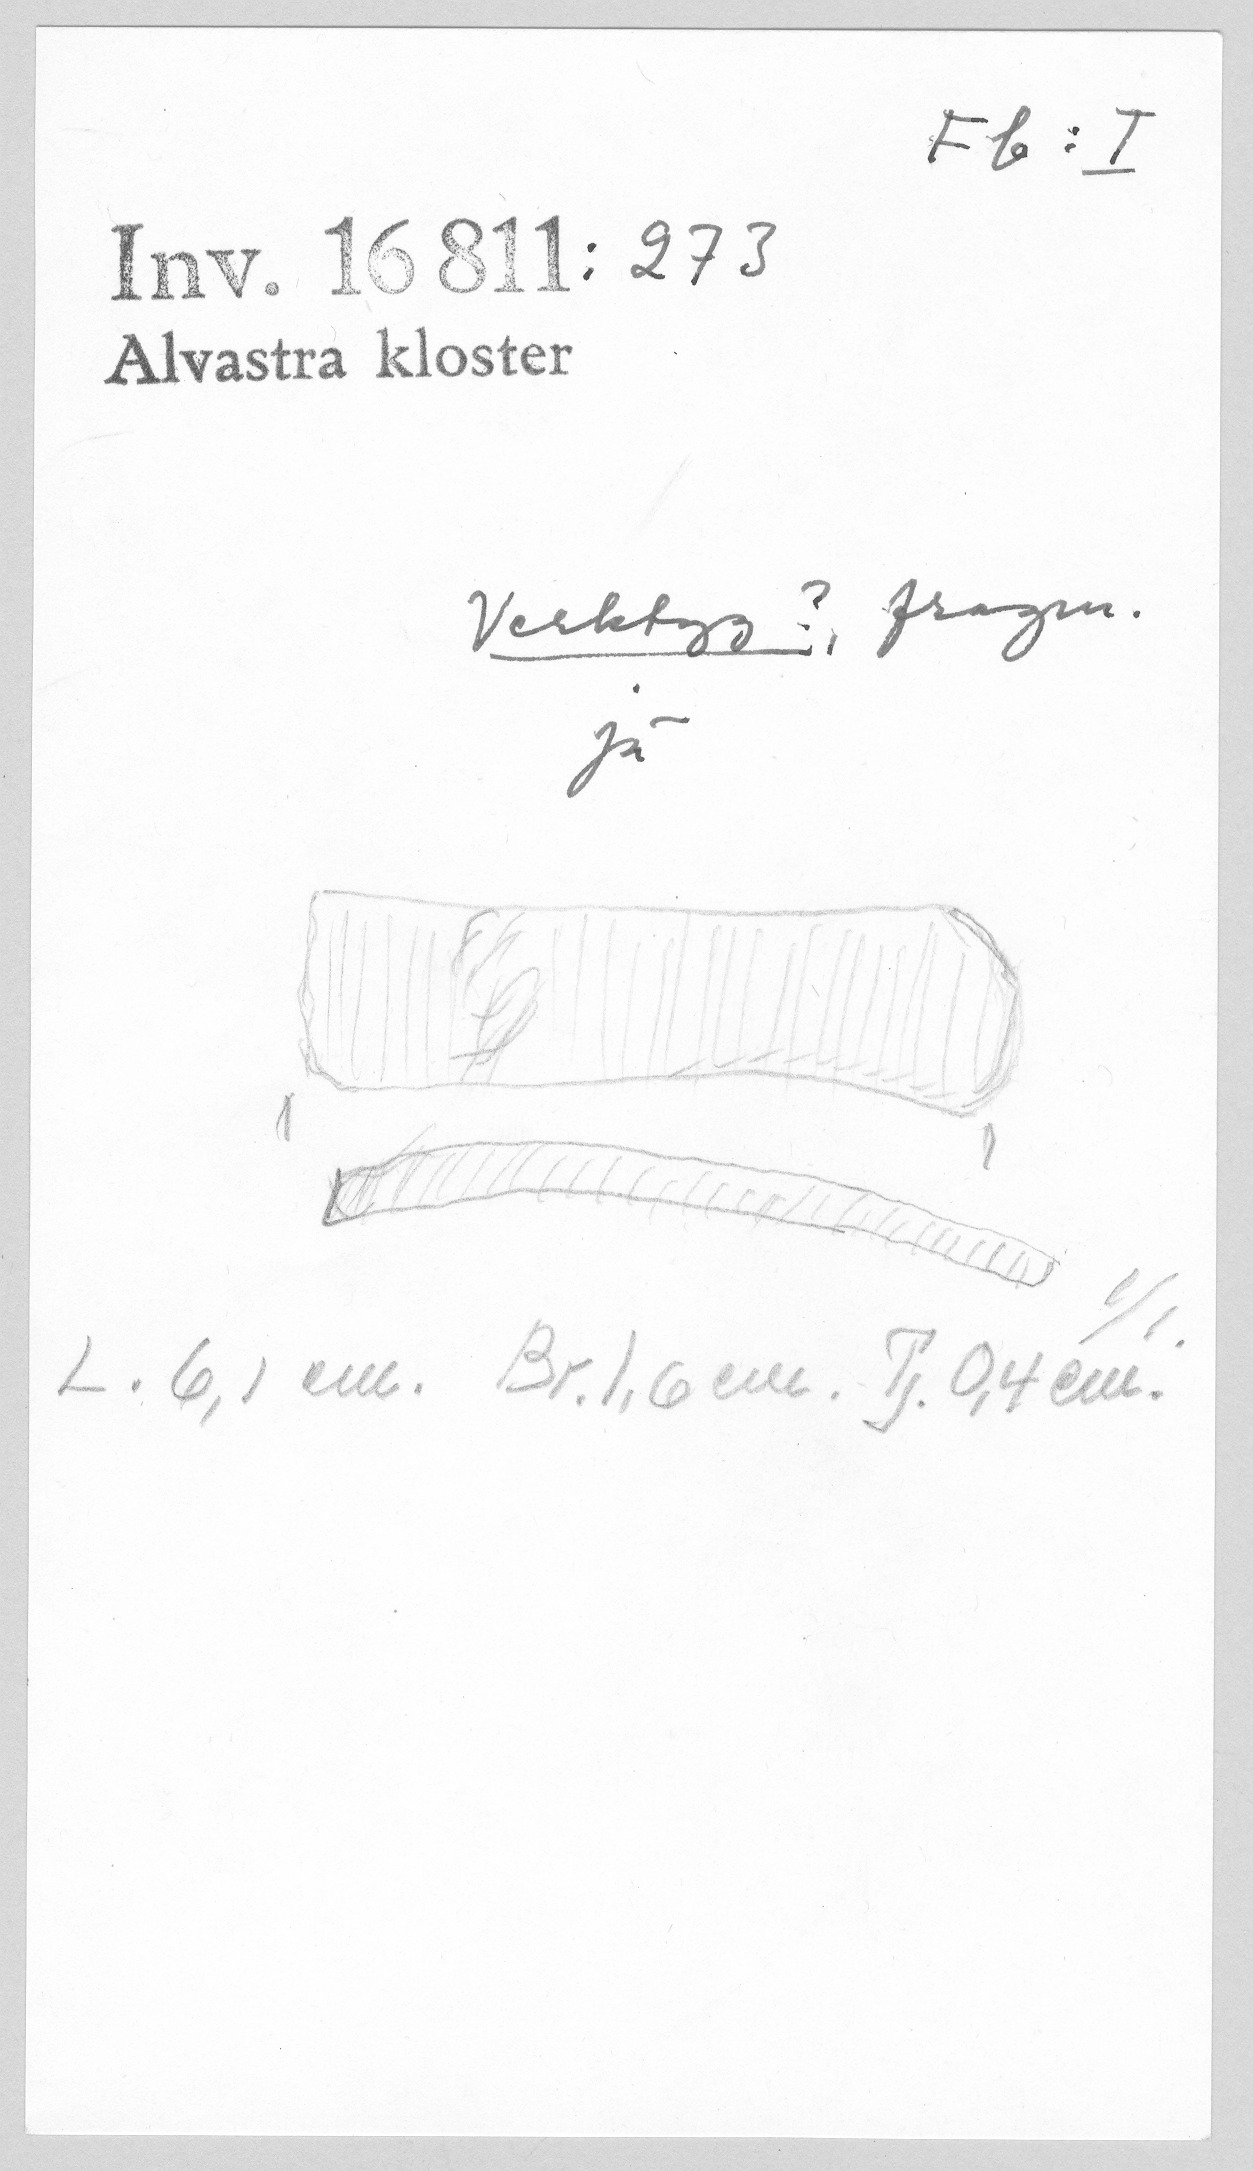 Fb : I
Inv. 16 811: 273
Alvastra kloster
Verktyg ?, fragm.
jä
1/1.
L. 6,1 cm. Br. 1,6 cm. Tj. 0,4 cm.